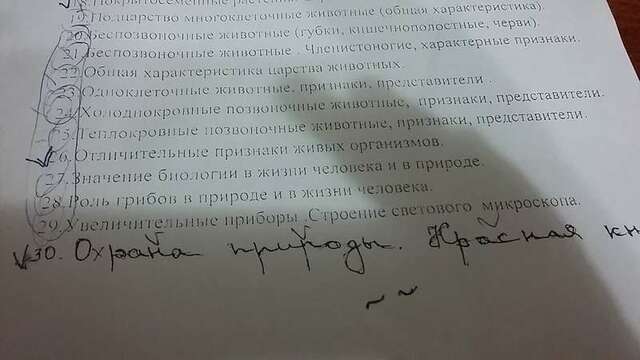 18. Покрытосеменные растения
19. Подцарство многоклеточные животные (общая характеристика).
20. Беспозвоночные животные (губки, кишечнополостные, черви).
21. Беспозвоночные животные . Членистоногие, характерные признаки.
22. Общая характеристика царства животных.
23. Одноклеточные животные, признаки, представители .
24. Холоднокровные позвоночные животные, признаки, представители.
25. Теплокровные позвоночные животные, признаки, представители.
26. Отличительные признаки живых организмов.
27. Значение биологии в жизни человека и в природе.
28. Роль грибов в природе и в жизни человека.
29. Увеличительные приборы .Строение светового микроскопа.
30. Охрана природы. Красная кн